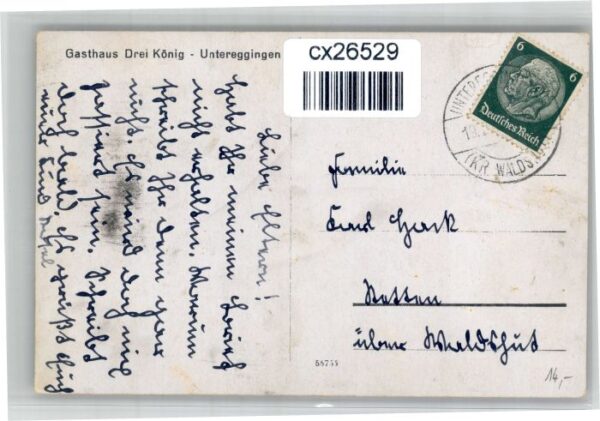 Gasthaus Drei König - Untereggingen
cx26529
6 6
Deutsches Reich
UNTEREGG
(KR. WALDS
Liebe Eltern!
Habt Ihr meinen Brief
nicht erhalten. Warum
schreibt Ihr denn gar
nicht. Es wird doch nix
passiert sein. Schreibt
doch bald. Es grüßt Euch
Familie
Karl Hack
Stetten
über Waldshut
58755
14,-